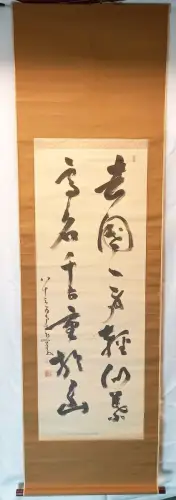 去國一身輕似葉
高名千古重於山